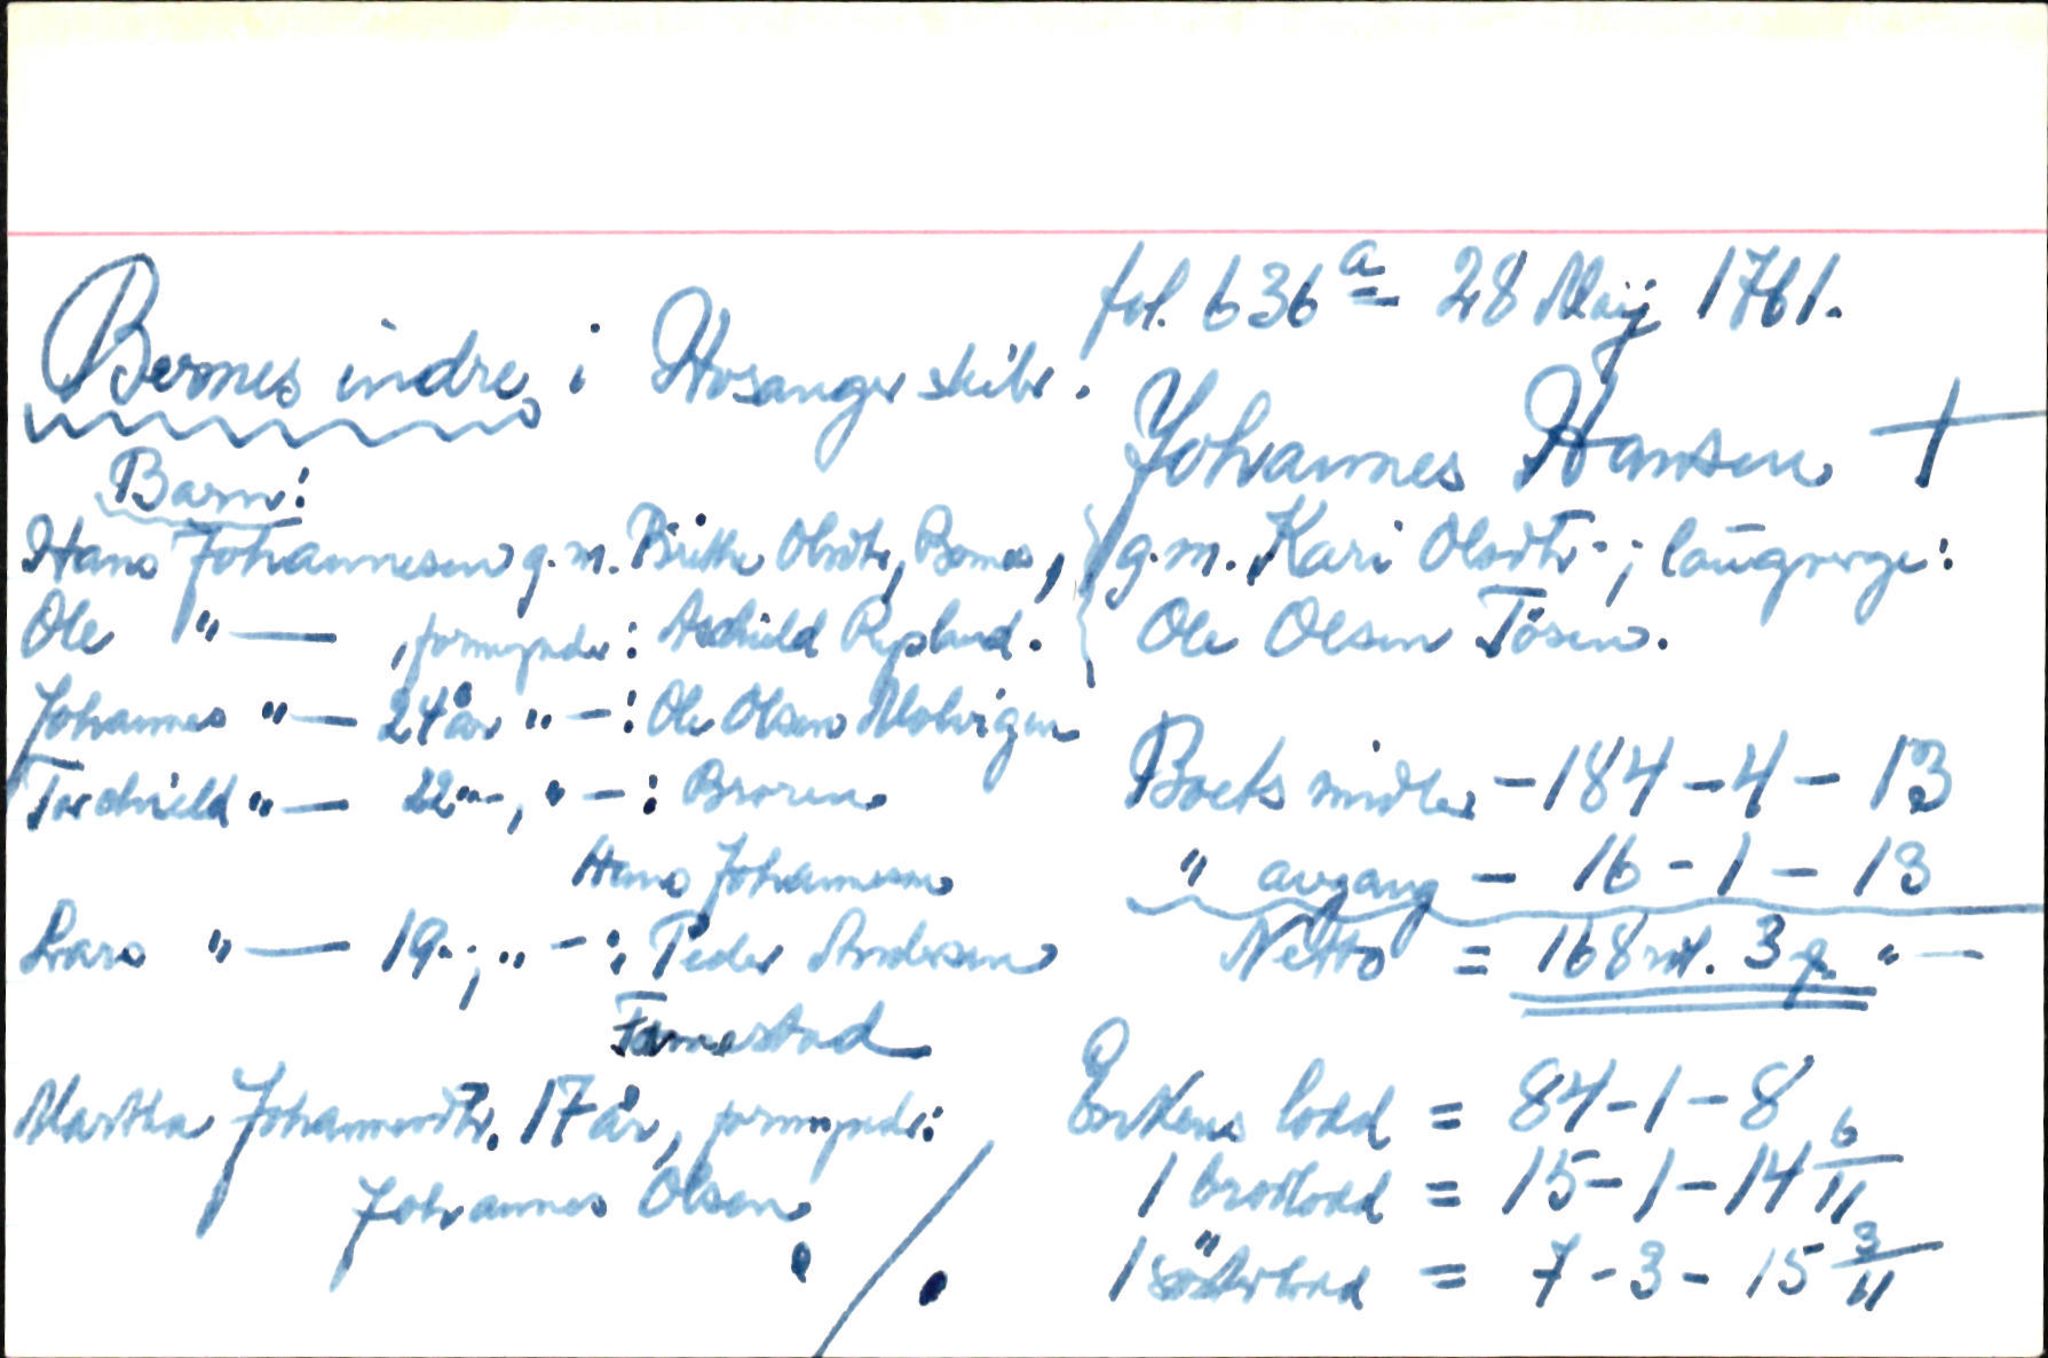 fol. 636 a 28 Maij 1761.
Bernes indre i Hosanger skibr.
Johannes Hansen †
g.m. Kari Olsdtr. ; laugverge:
Ole Olsen Tösen.
Barn:
Hans Johannesen g.m. Brithe Olsdtr, Bernes,
Ole " — , formynder: Aschield Rysland.
Johannes " — 24 år " — : Ole Olsen Molvigen
Torchield " — 22 " , " — : Broren
Hans Johannesen
Lars " — 19 " ; " — : Peder Andersen
Famestad
Martha Johannesdtr. 17 år, formynder:
Johannes Olsen
Boets midler - 184 - 4 - 13
" avgang - 16 - 1 - 13
Netto = 168 rdl. 3 " —
Enkens lodd = 84 - 1 - 8
1 brorlodd = 15 - 1 - 14 6/11
1 sösterlodd = 7 - 3 - 15 3/11